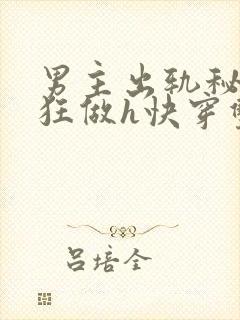 男主出轨秘
狂做h快穿
吕培全